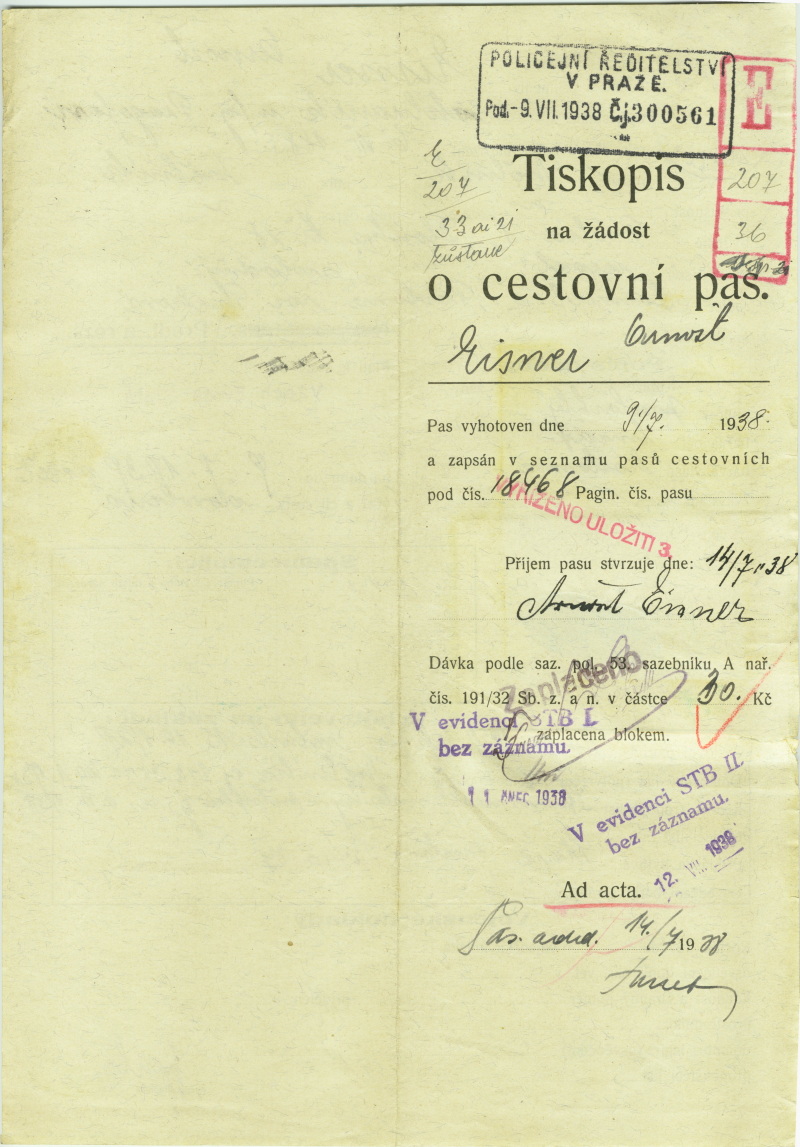 POLICEJNÍ ŘEDITELSTVÍ
V PRAZE.
Pod.-9.VII.1938 Č.j.300561
E
E-
207
33 ai 21
zůstane
207
36
Tiskopis
na žádost
o cestovní pas.
Eisner Arnošt
Pas vyhotoven dne 9./7. 1938.
a zapsán v seznamu pasů cestovních
pod čís. 18468 Pagin. čís. pasu
VYŘÍZENO ULOŽITI 3.
Příjem pasu stvrzuje dne: 14/7.38
Arnošt Eisner
Dávka podle saz. pol. 53. sazebníku A nař.
Zaplaceno
čís. 191/32 Sb. z. a n. v částce 30. Kč
zaplacena blokem.
V evidenci STB I.
bez záznamu.
11 1938
V evidenci STB II.
bez záznamu.
12. VII. 1938
Ad acta.
14./7 1938